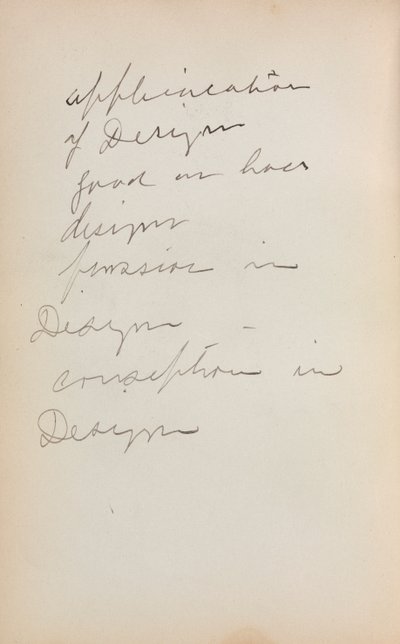 application
of Design
good or bad
design
in
Design -
conseption in
Design